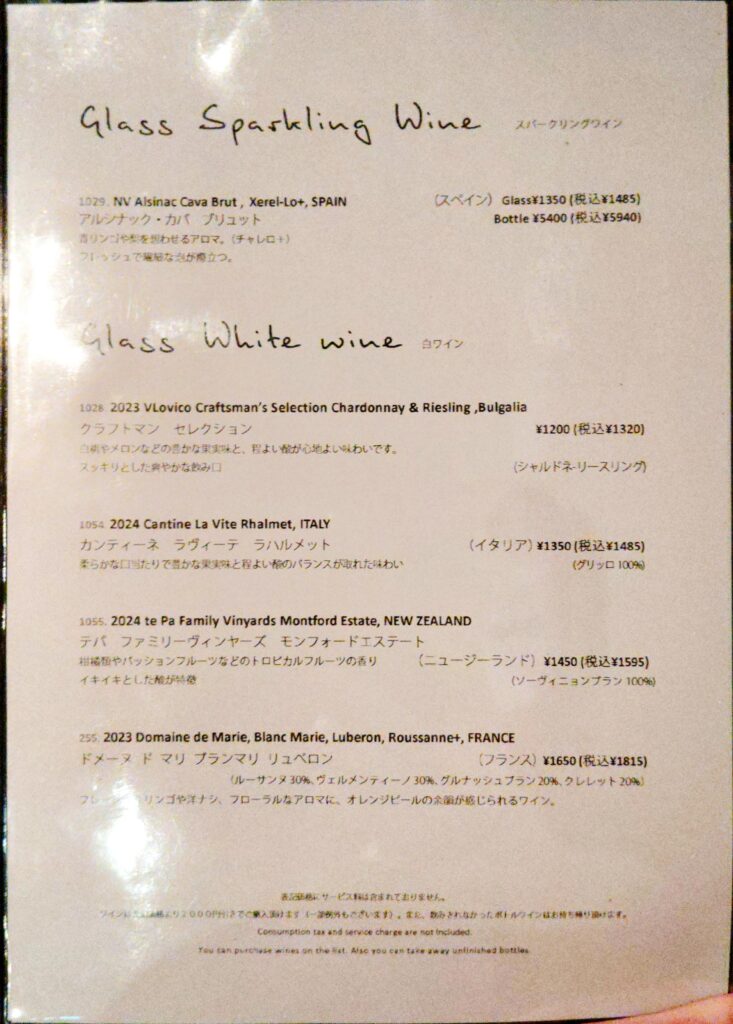 Glass Sparkling Wine スパークリングワイン
1029. NV Alsinac Cava Brut , Xerel-Lo+, SPAIN （スペイン） Glass¥1350 (税込¥1485)
アルシナック・カバ ブリュット Bottle ¥5400 (税込¥5940)
青リンゴや梨を想わせるアロマ。（チャレロ＋）
フレッシュで繊細な泡が際立つ。
Glass White wine 白ワイン
1028. 2023 VLovico Craftsman's Selection Chardonnay & Riesling ,Bulgalia
クラフトマン セレクション ¥1200 (税込¥1320)
白桃やメロンなどの豊かな果実味と、程よい酸が心地よい味わいです。
スッキリとした爽やかな飲み口 (シャルドネ-リースリング)
1054. 2024 Cantine La Vite Rhalmet, ITALY
カンティーネ ラヴィーテ ラハルメット （イタリア） ¥1350 (税込¥1485)
柔らかな口当たりで豊かな果実味と程よい酸のバランスが取れた味わい (グリッロ 100%)
1055. 2024 te Pa Family Vinyards Montford Estate, NEW ZEALAND
テパ ファミリーヴィンヤーズ モンフォードエステート
柑橘類やパッションフルーツなどのトロピカルフルーツの香り （ニュージーランド） ¥1450 (税込¥1595)
イキイキとした酸が特徴 (ソーヴィニョンブラン 100%)
255. 2023 Domaine de Marie, Blanc Marie, Luberon, Roussanne+, FRANCE
ドメーヌ ド マリ ブランマリ リュベロン （フランス） ¥1650 (税込¥1815)
（ルーサンヌ 30%、ヴェルメンティーノ 30%、グルナッシュブラン 20%、クレレット 20%）
リンゴや洋ナシ、フローラルなアロマに、オレンジピールの余韻が感じられるワイン。
表記価格にサービス料は含まれておりません。
ワインは表記価格より２０００円引きでご購入頂けます（一部例外もございます）。また、飲みきれなかったボトルワインはお持ち帰り頂けます。
Consumption tax and service charge are not included.
You can purchase wines on the list. Also you can take away unfinished bottles.